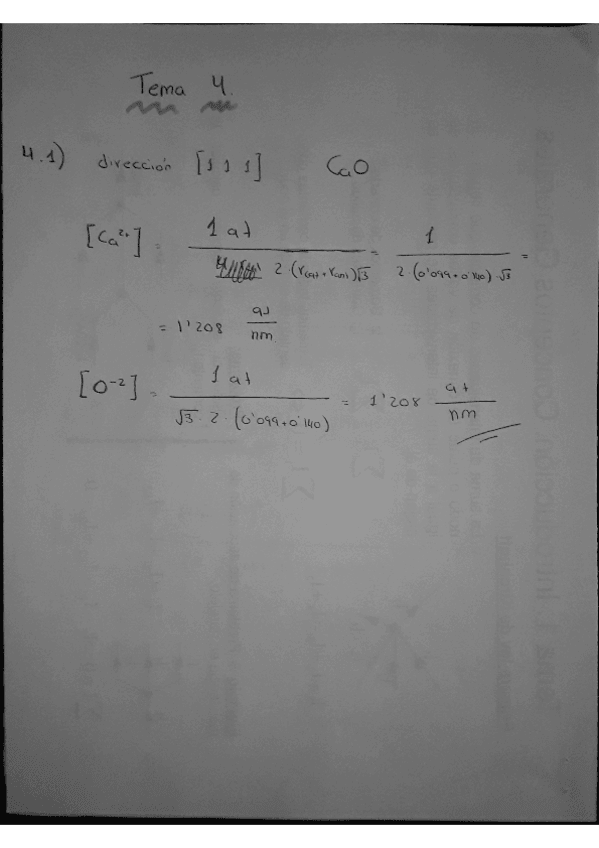 Tema 4.
4.1) dirección [1 1 1] CaO
[Ca²⁺] = 1 at / 2·(rcat + rani)√3 = 1 / 2·(0'099+0'140)·√3 =
= 1'208 at/nm
[O⁻²] = 1 at / √3·2·(0'099+0'140) = 1'208 at/nm